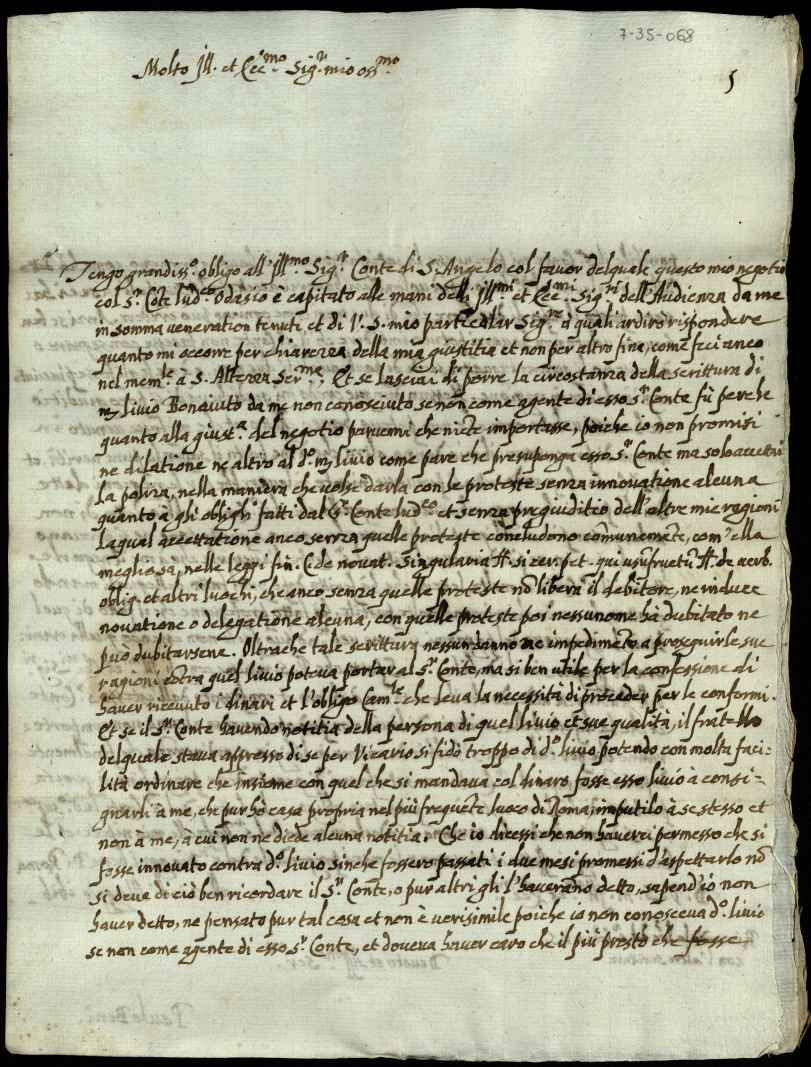 7-35-068
Molto Ill. et Ecc.mo Sig.r mio oss.mo
5
Tengo grandiss.o obligo all' Ill.mo Sig.r Conte di S. Angelo col favor delquale questo mio negotio
col s.r Cōte Lud.co Odasio è capitato alle mani delli Ill.mi et Ecc.mi Sig.ri dell'Audienza da me
in somma veneration tenuti et di V. S. mio particolar Sig.re à quali ardirò rispondere
quanto mi occorre per chiarezza della mia giustitia et non per altro fine, come feci anco
nel mem.le à S. Altezza Ser.ma, Et se lasciai di porre la circostanza della scrittura di
m. livio Bonaiuto da me non conosciuto senon come agente di esso s.r Conte fù perche
quanto alla giust.a del negotio parvemi che niēte importasse, poiche io non promisi
ne dilatione ne altro al d.o m. livio come pare che presuponga esso s.r Conte ma solo accettai
la poliza, nella maniera che volse darla con le proteste senza innovatione alcuna
quanto à gli oblighi fatti dal s.r Conte Lud.co et senza pregiuditio dell'altre mie ragioni
laqual accettatione anco senza quelle proteste cōcludono cōmunemēte, com'ella
meglio sà, nelle leggi fin. C. de novat. Singularia ff. si cer. pet. qui usufructū ff. de verb.
oblig. et altri luochi, che anco senza quelle proteste nō libera il debitore, ne induce
novatione o delegatione alcuna, con quelle proteste poi nessuno ne hà dubitato ne
può dubitarsene. Oltrache tale scrittura nessun danno ne impedimēto a proseguir le sue
ragioni cōtra quel livio poteva portar al s.r Conte, ma si ben utile per la confessione di
haver ricevuto i dinari et l'obligo Cam.le che leva la necessità di proceder per le conformi.
Et se il s.r Conte havendo notitia della persona di quel livio et sue qualità, il fratello
delquale stava appresso di se per Vicario si fidò troppo di d.o livio potendo con molta faci=
lità ordinare che insieme con quel che si mandava col dinaro fosse esso livio à consi=
gnarli à me, che pur hò casa propria nel più frequēte luoco di Roma, imputilo à se stesso et
non à me, à cui non ne diede alcuna notitia. Che io dicessi che non haverei permesso che si
fosse innovato contra d.o livio sinche fossero passati i due mesi promessi d'aspettarlo nō
si deve di ciò ben ricordare il s.r Conte, o pur altri gli l'haverāno detto, sapend'io non
haver detto, ne pensato pur tal cosa et non è verisimile poiche io non conosceva d.o livio
se non come agente di esso s.r Conte, et doveva haver caro che il più presto che fosse